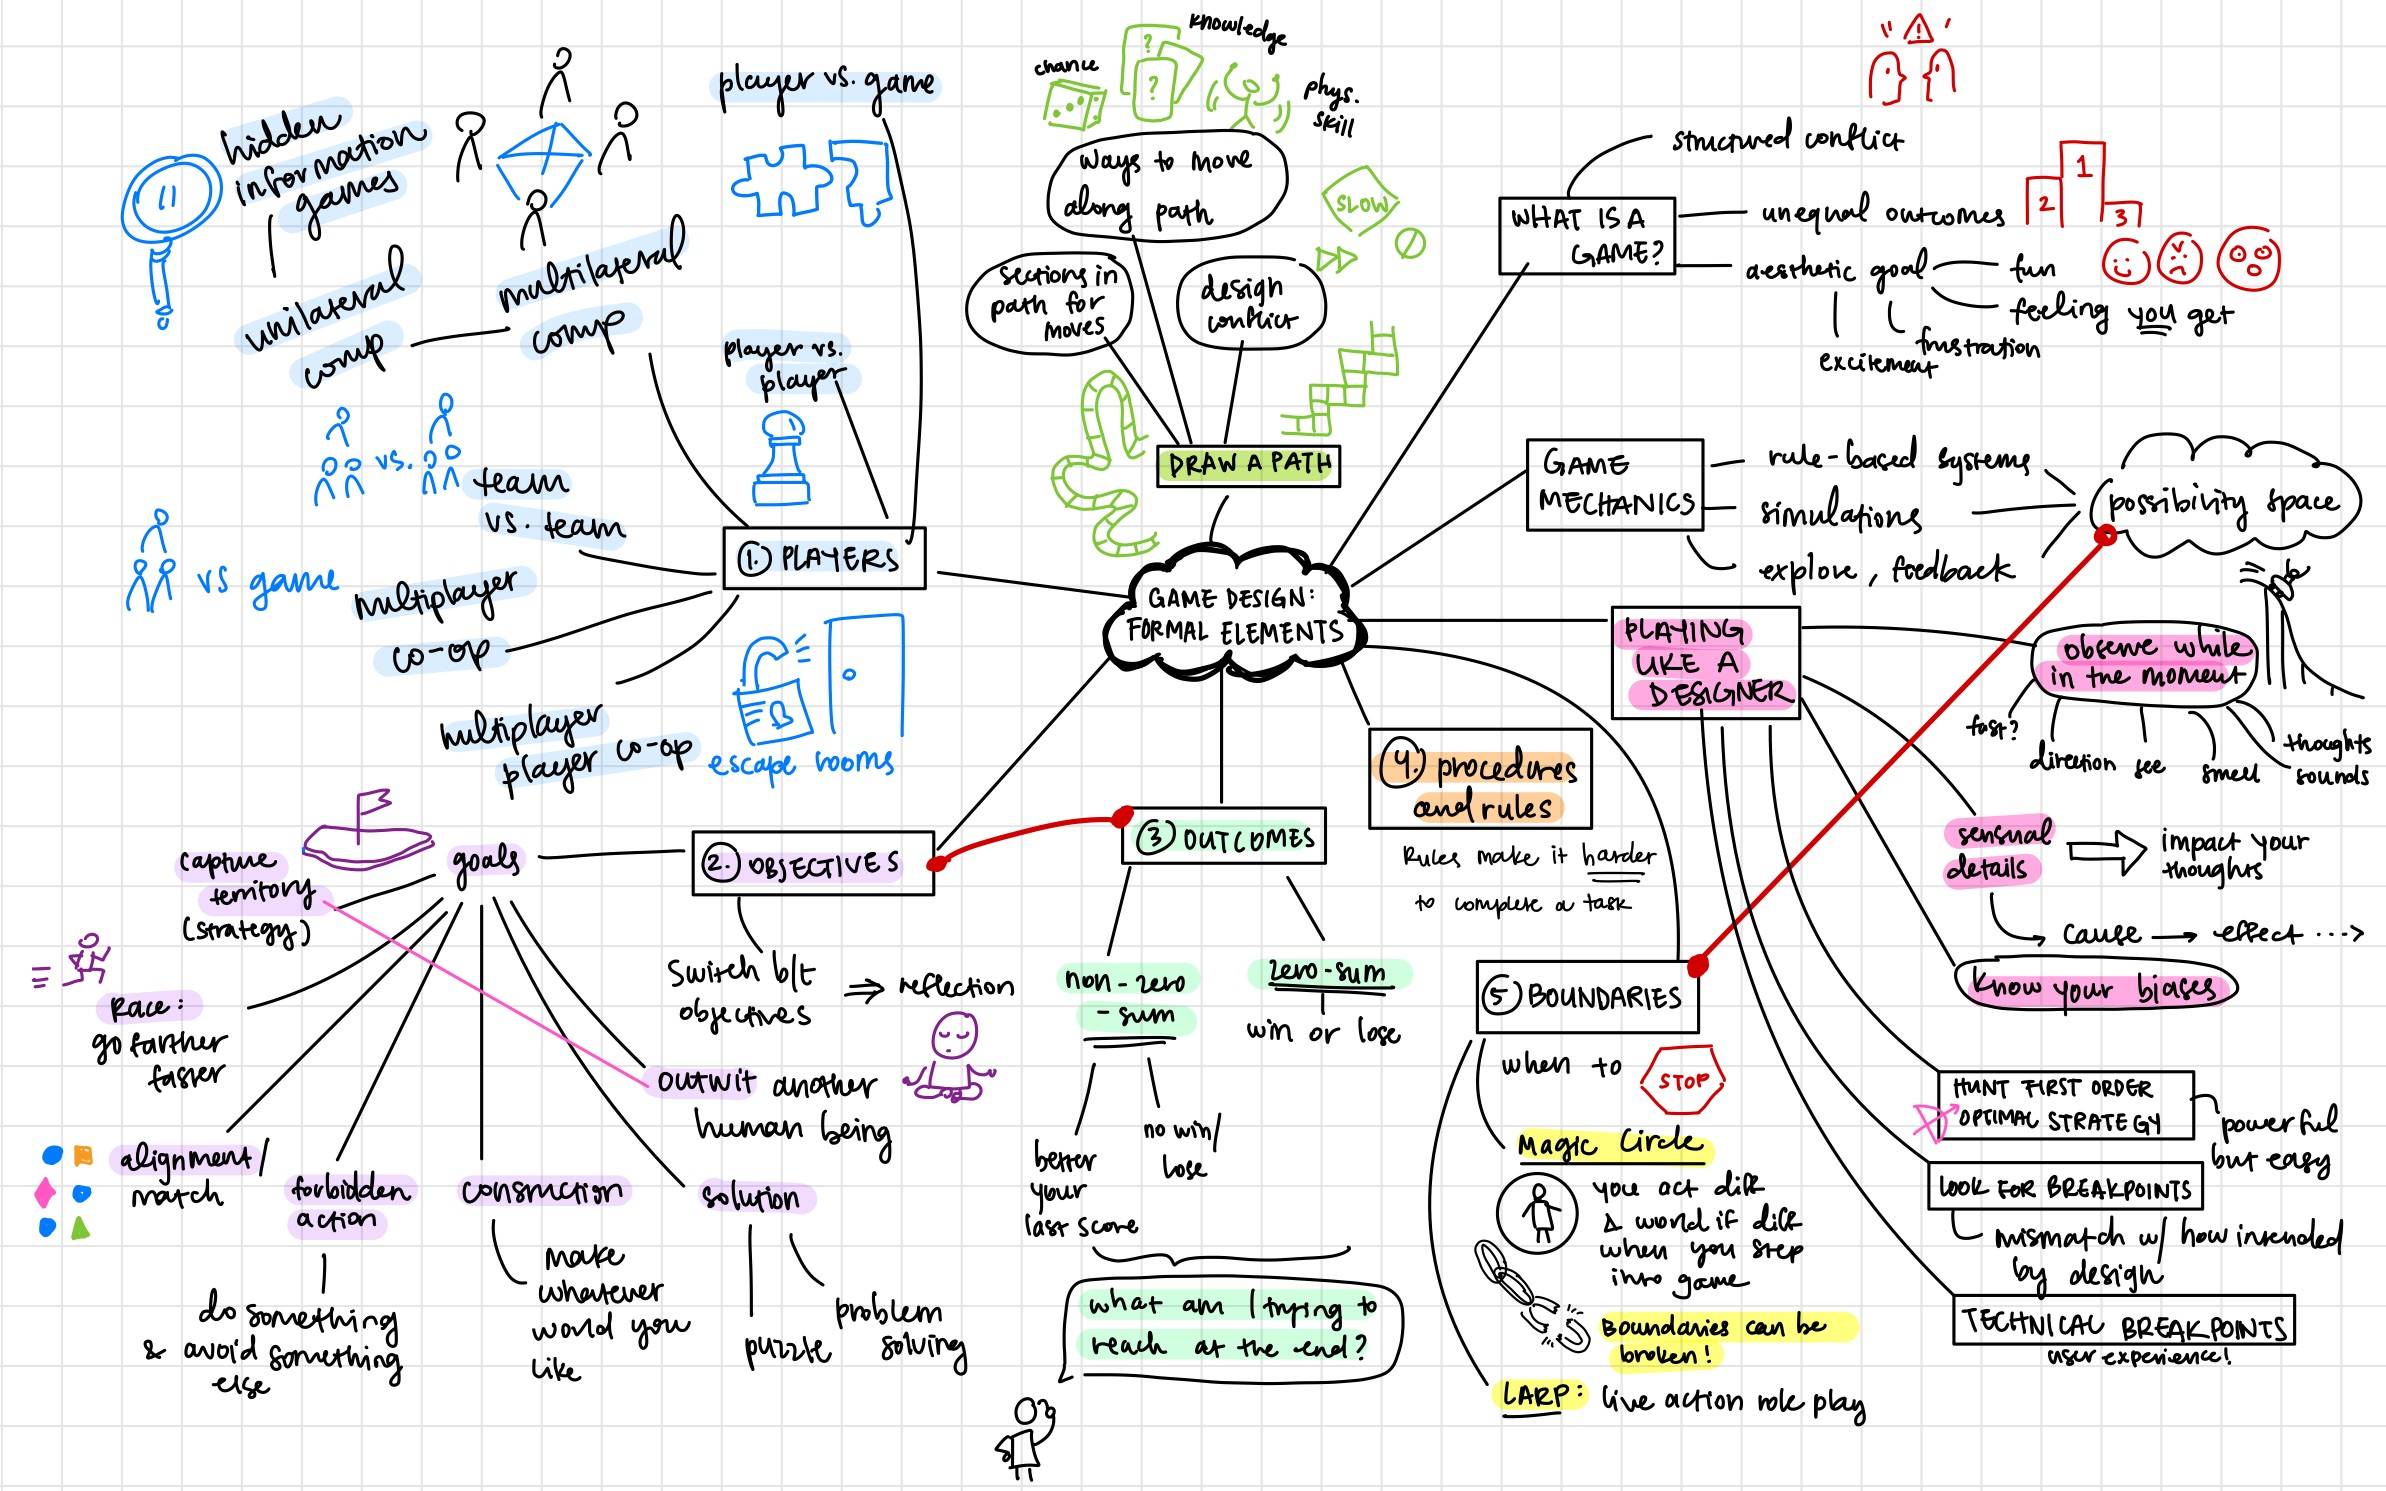 knowledge
chance
phys.
skill
?
?
ways to move
along path
SLOW
sections in
path for
moves
design
conflict
DRAW A PATH
player vs. game
hidden
information
games
unilateral
comp
multilateral
comp
player vs.
player
vs.
team
vs. team
vs game
multiplayer
co-op
multiplayer
player co-op
escape rooms
1. PLAYERS
GAME DESIGN:
FORMAL ELEMENTS
WHAT IS A
GAME?
structured conflict
unequal outcomes
1
2
3
aesthetic goal
fun
feeling you get
frustration
excitement
GAME
MECHANICS
rule-based systems
simulations
explore, feedback
possibility space
PLAYING
LIKE A
DESIGNER
observe while
in the moment
fast?
direction
see
smell
thoughts
sounds
sensual
details
impact your
thoughts
cause → effect ...>
Know your biases
HUNT FIRST ORDER
OPTIMAL STRATEGY
powerful
but easy
LOOK FOR BREAKPOINTS
mismatch w/ how intended
by design
TECHNICAL BREAKPOINTS
user experience!
4. procedures
and rules
Rules make it harder
to complete a task
5 BOUNDARIES
when to
STOP
Magic Circle
you act diff
& world if diff
when you step
into game
Boundaries can be
broken!
LARP: live action role play
3 OUTCOMES
non-zero
-sum
zero-sum
win or lose
better
your
last score
no win/
lose
what am I trying to
reach at the end?
2. OBJECTIVES
switch b/t
objectives
⇒ reflection
goals
capture
territory
(strategy)
Race:
go farther
faster
alignment/
match
forbidden
action
do something
& avoid something
else
construction
make
whatever
world you
like
solution
puzzle
problem
solving
outwit another
human being